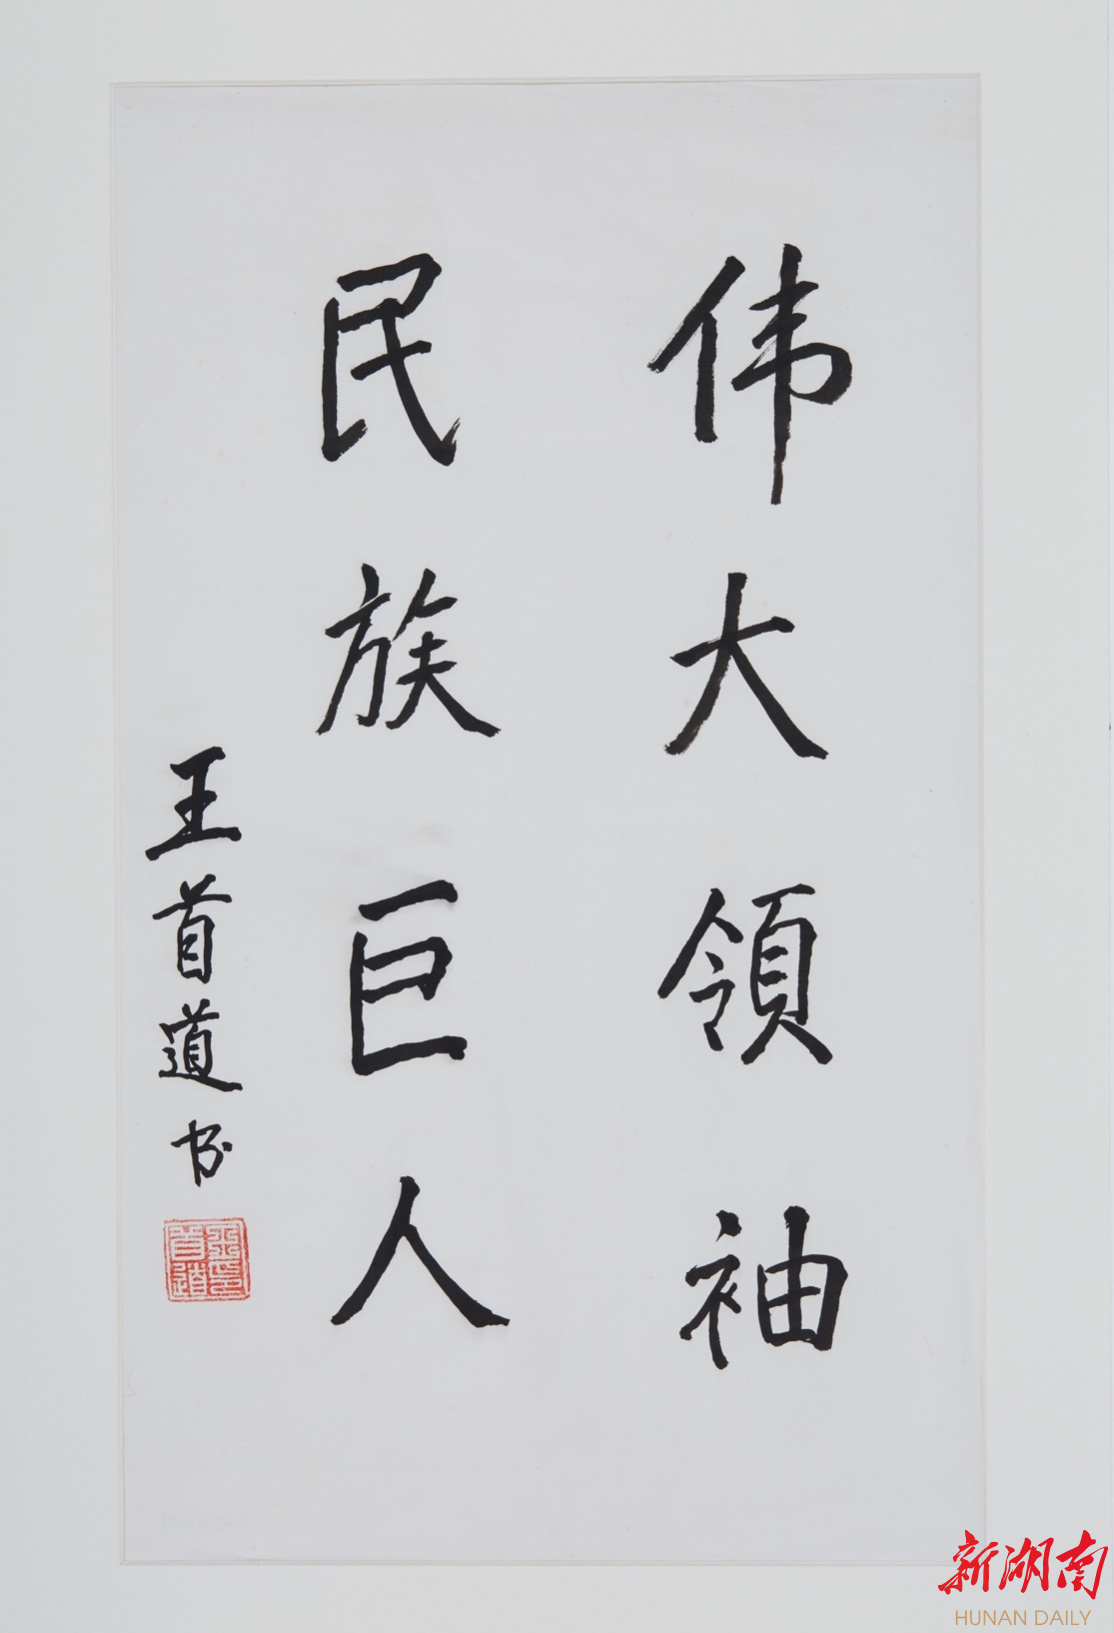 伟大領袖
民族巨人
王首道书
王首道印
新湖南
HUNAN DAILY